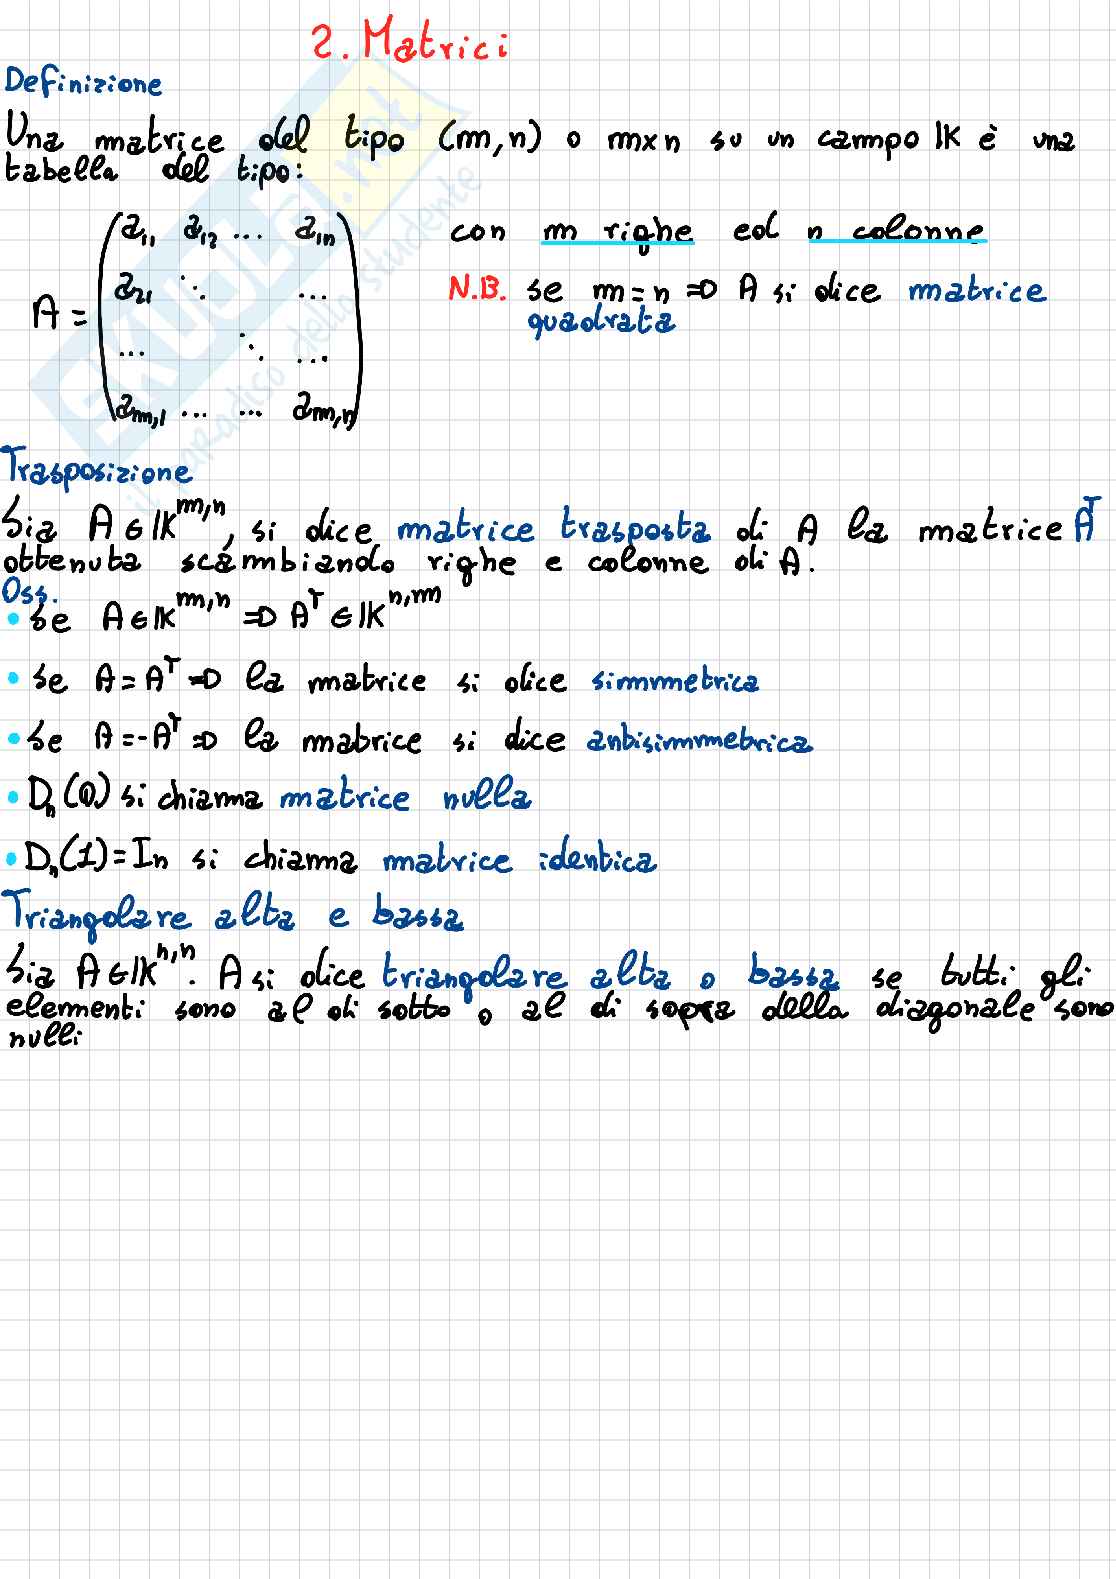 2. Matrici
Definizione
Una matrice del tipo (m,n) o mxn su un campo IK è una
tabella del tipo:
A = (a₁₁ a₁₂ ... a₁ₙ
a₂₁ ⋱ ...
... ⋱ ...
aₘ,₁ ... ... aₘ,ₙ)
con m righe ed n colonne
N.B. se m=n => A si dice matrice
quadrata
Trasposizione
Sia A ∈ IK^m,n, si dice matrice trasposta di A la matrice A^T
ottenuta scambiando righe e colonne di A.
Oss.
• Se A ∈ IK^m,n => A^T ∈ IK^n,m
• Se A = A^T => la matrice si dice simmetrica
• Se A = -A^T => la matrice si dice antisimmetrica
• Dₙ(0) si chiama matrice nulla
• Dₙ(1) = In si chiama matrice identica
Triangolare alta e bassa
Sia A ∈ IK^n,n. A si dice triangolare alta o bassa se tutti gli
elementi sono al di sotto o al di sopra della diagonale sono
nulli
SKUOLA.net
il paradiso dello studente